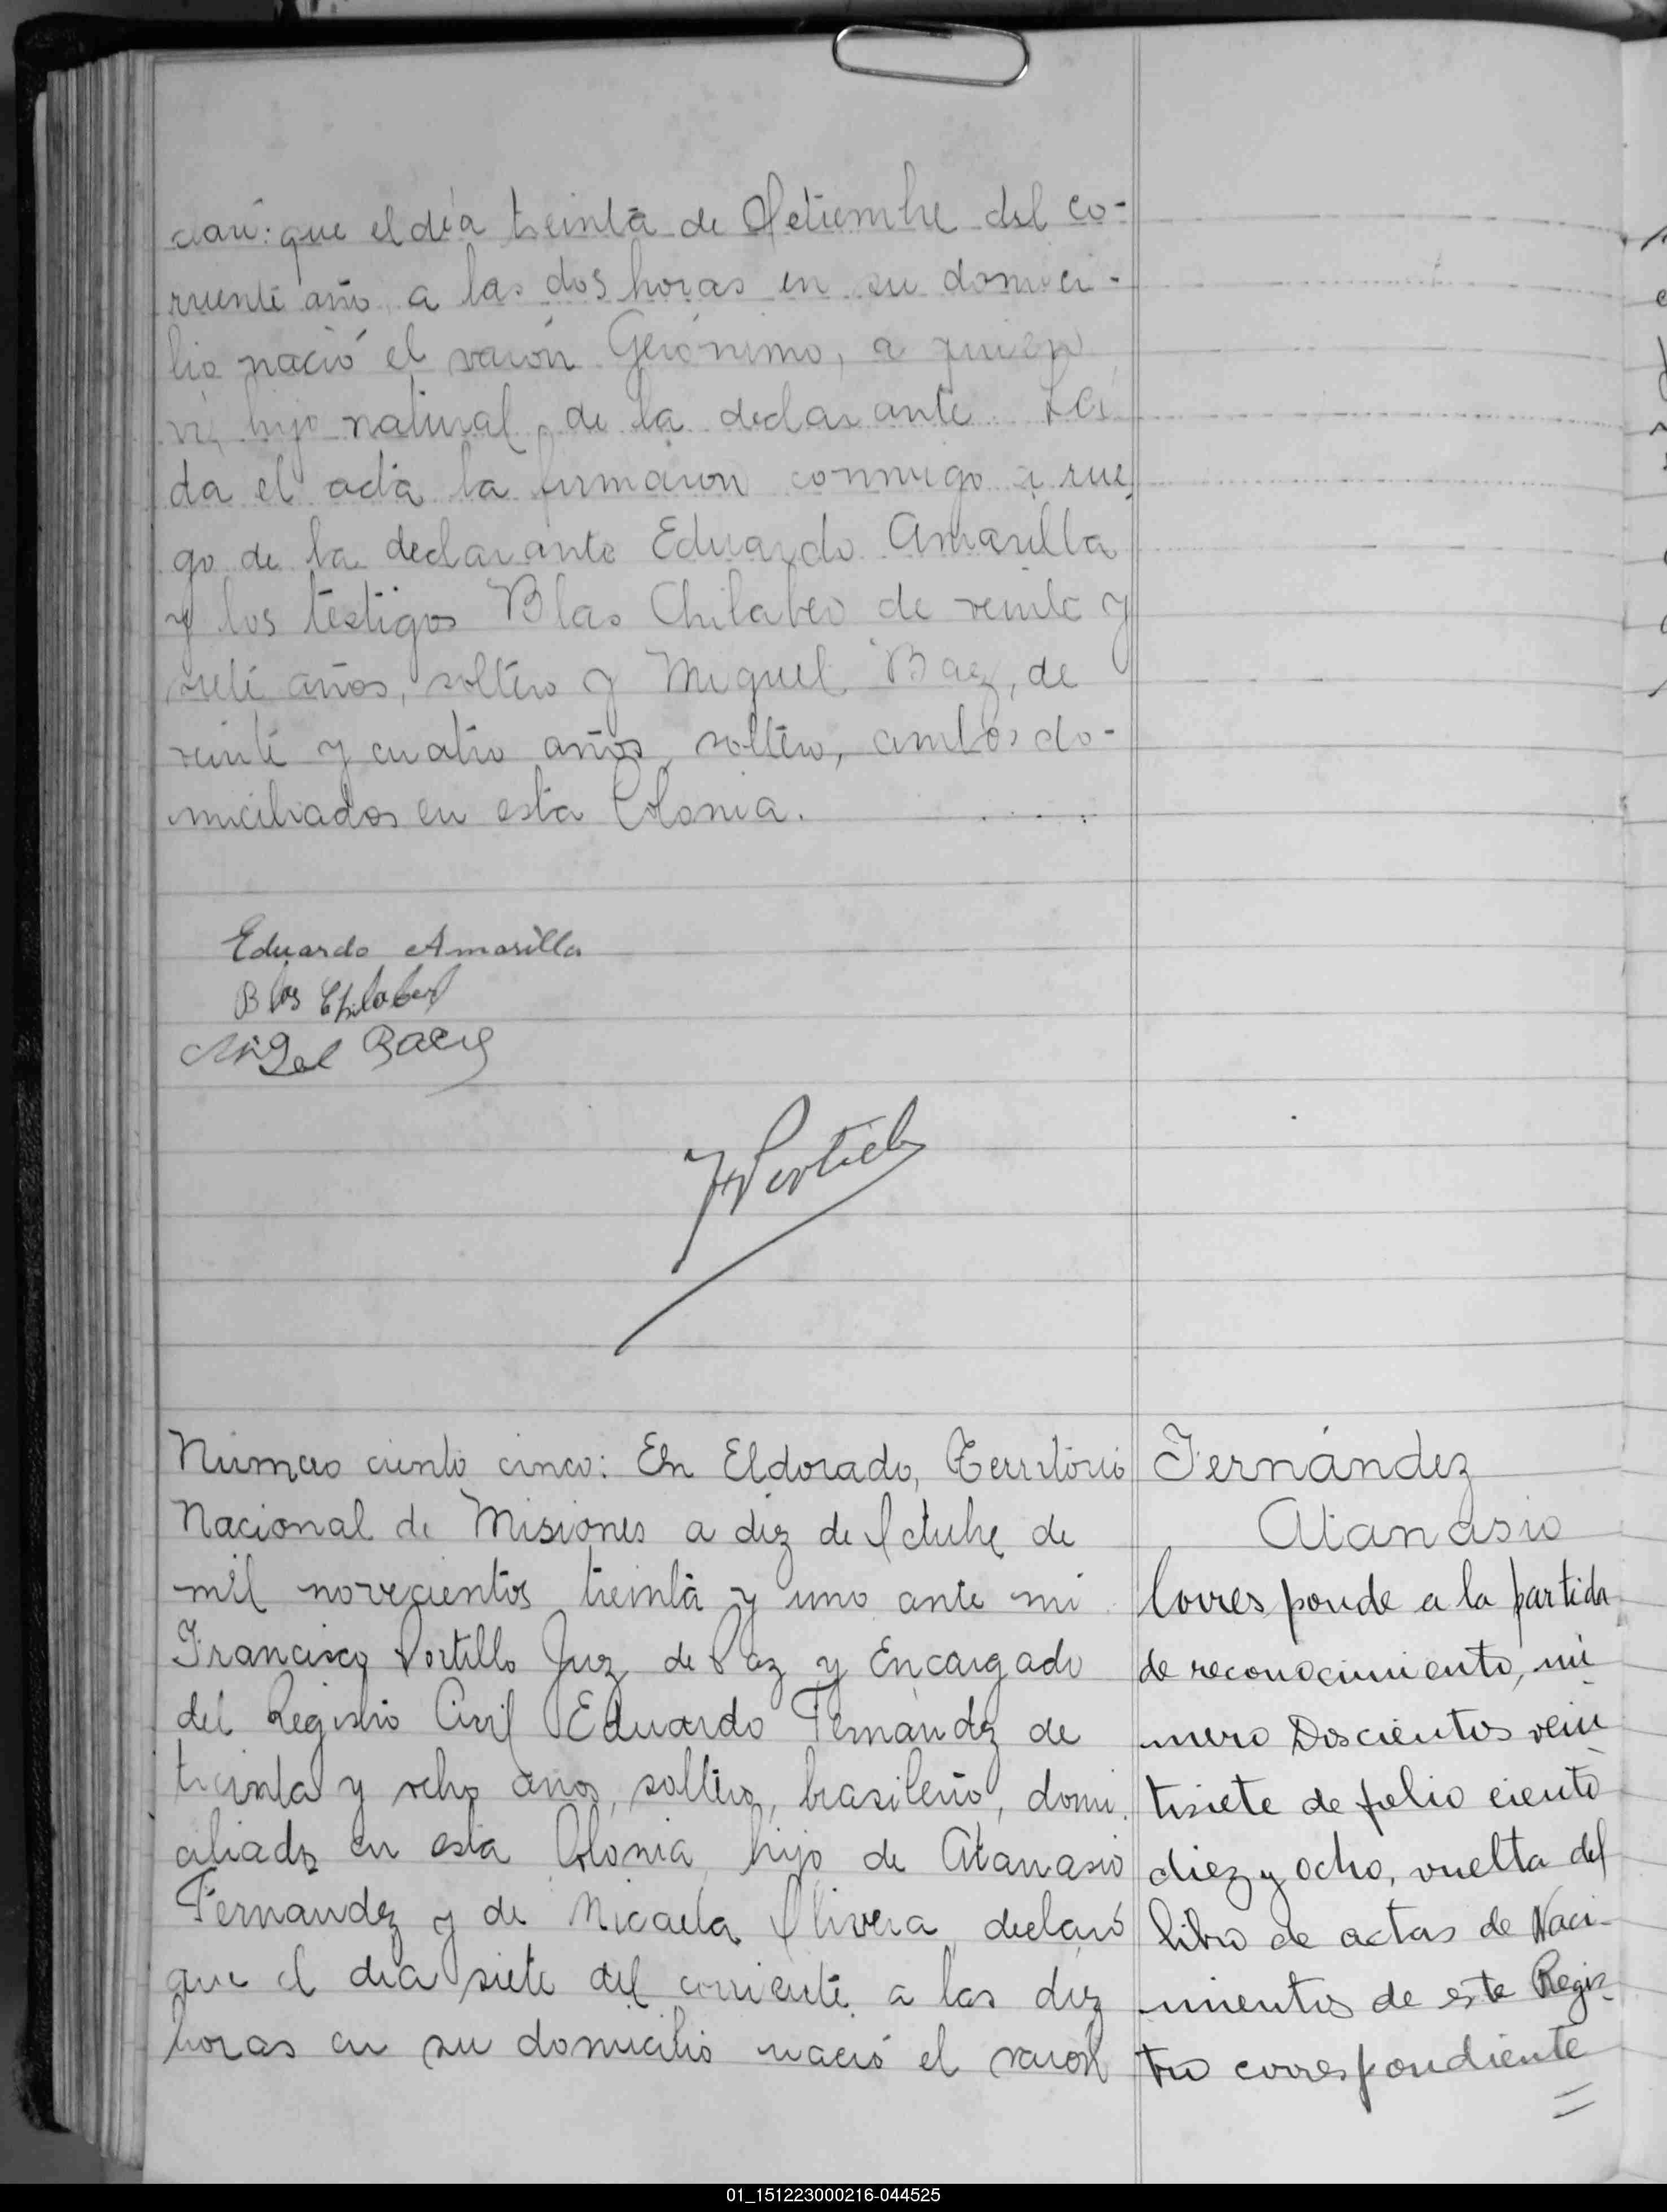 claró: que el día treinta de Setiembre del co-
rriente año, a las dos horas en su domici-
lio nació el varón Gerónimo, a quien
ví, hijo natural de la declarante. Leí
da el acta la firmaron conmigo a rue
go de la declarante Eduardo Amarilla
y los testigos Blas Chilaber de veinte y
siete años, soltero y Miguel Baez, de
veinte y cuatro años, soltero, ambos do-
miciliados en esta Colonia.
Eduardo Amarilla
Blas Chilaber
Migel Baez
F Portillo
Número ciento cinco: En Eldorado, Territorio
Nacional de Misiones a diez de Octubre de
mil novecientos treinta y uno ante mí
Francisco Portillo Juez de Paz y Encargado
del Registro Civil Eduardo Fernández de
treinta y ocho años, soltero, brasileño, domi
ciliado en esta Colonia, hijo de Atanasio
Fernández y de Micaela Olivera declaró
que el día siete del corriente a las diez
horas en su domicilio nació el varón
Fernández
Atanasio
Corresponde a la partida
de reconocimiento, nú
mero Doscientos vein
tisiete de folio ciento
diez y ocho, vuelta del
libro de actas de Naci-
mientos de este Regis-
tro correspondiente
01_151223000216-044525